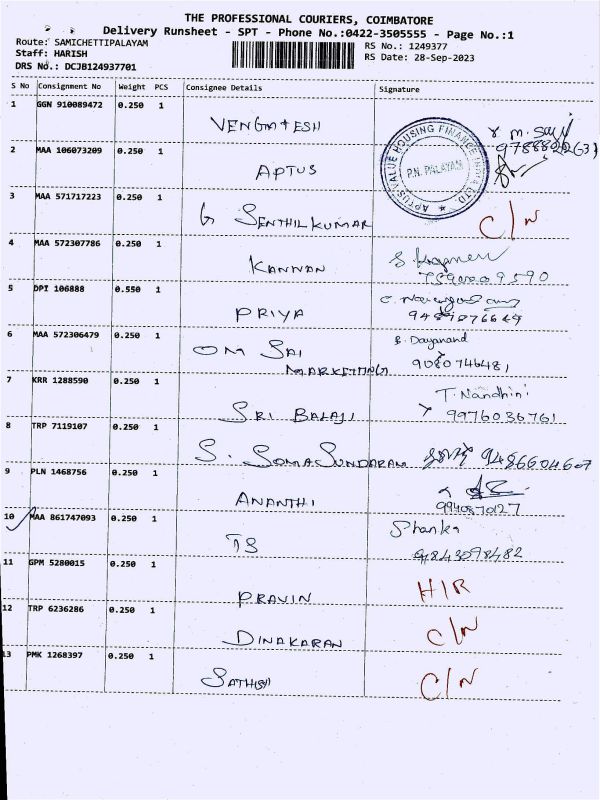 THE PROFESSIONAL COURIERS, COIMBATORE
Delivery Runsheet - SPT - Phone No.:0422-3505555 - Page No.:1
Route: SAMICHETTIPALAYAM
Staff: HARISH
DRS No.: DCJB124937701
RS No.: 1249377
RS Date: 28-Sep-2023
S No Consignment No Weight PCS Consignee Details Signature
1 GGN 910089472 0.250 1
VENGATESH
2 MAA 106073209 0.250 1
APTUS
APTUS VALUE HOUSING FINANCE INDIA LTD.
P.N. PALAYAM
3 MAA 571717223 0.250 1
G SENTHILKUMAR C/N
4 MAA 572307786 0.250 1
KANNAN
5 DPI 106888 0.550 1
PRIYA
6 MAA 572306479 0.250 1
OM SAI B. Dayanand
MARKETTING 9080746481
7 KRR 1288590 0.250 1
T. Nandhini
SRI BALAJI 9976036761
8 TRP 7119107 0.250 1
S. SOMASUNDARAM 9486604607
9 PLN 1468756 0.250 1
ANANTHI
10 MAA 861747093 0.250 1
TS 9843098482
11 GPM 5280015 0.250 1
PRAVIN H/R
12 TRP 6236286 0.250 1
DINAKARAN C/N
13 PMK 1268397 0.250 1
SATHISH C/N